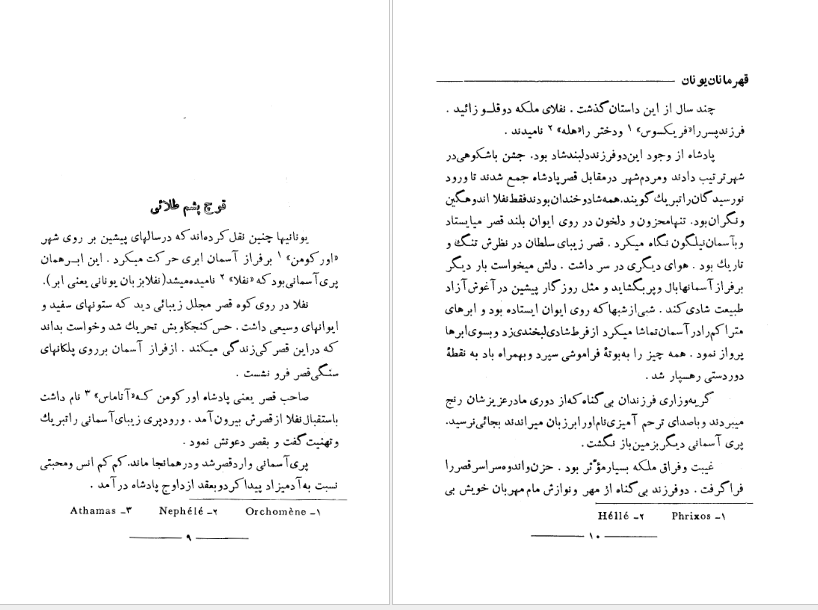 قوچ پشم طلائی
یونانیها چنین نقل کرده‌اند که درسالهای پیشین بر روی شهر
«اور کومن» ۱ برفراز آسمان ابری حرکت میکرد . این ابر همان
پری آسمانی بود که «نفلا» ۲ نامیده میشد (نفلا بزبان یونانی یعنی ابر).
نفلا در روی کوه قصر مجلل زیبائی دید که ستونهای سفید و
ایوانهای وسیعی داشت . حس کنجکاویش تحریك شد وخواست بداند
که در این قصر کی زندگی میکند . از فراز آسمان برروی پلکانهای
سنگی قصر فرو نشست .
صاحب قصر یعنی پادشاه اور کومن کـه «آتاماس» ۳ نام داشت
باستقبال نفلا از قصرش بیرون آمد . ورود پری زیبای آسمانی را تبریك
و تهنیت گفت و بقصر دعوتش نمود .
پری آسمانی وارد قصر شد و در همانجا ماند. کم کم انس ومحبتی
نسبت به آدمیزاد پیدا کرد و بعقد ازدواج پادشاه در آمد .
۱– Orchomène ۲– Nephélé ۳– Athamas
۹
قهرمانان یونان
چند سال از این داستان گذشت . نفلای ملکه دو قلـو زائید .
فرزند پسر را «فریکسوس» ۱ ودختر را «هله» ۲ نامیدند .
پادشاه از وجود این دو فرزند دلبند شاد بود. جشن باشکوهی در
شهر ترتیب دادند و مردم شهر در مقابل قصر پادشاه جمع شدند تا ورود
نورسیدگان را تبریك گویند. همه شاد و خندان بودند فقط نفلا اندوهگین
و نگران بود. تنها محزون و دلخون در روی ایوان بلند قصر میایستاد
و بآسمان نیلگون نگاه میکرد . قصر زیبای سلطان در نظرش تنگ و
تاریك بود . هوای دیگری در سر داشت . دلش میخواست بار دیگر
برفراز آسمانها بال و پر بگشاید و مثل روزگار پیشین در آغوش آزاد
طبیعت شادی کند . شبی از شبها که روی ایوان ایستاده بود و ابرهای
متراکم را در آسمان تماشا میکرد از فرط شادی لبخندی زد و بسوی ابرها
پرواز نمود . همه چیز را به بوتهٔ فراموشی سپرد و بهمراه باد به نقطهٔ
دوردستی رهسپار شد .
گریه وزاری فرزندان بی گناه که از دوری مادر عزیزشان رنج
میبردند و باصدای ترحم آمیزی نام اورا بر زبان میراندند بجائی نرسید.
پری آسمانی دیگر بزمین باز نگشت .
غیبت و فراق ملکه بسیار مؤثر بود . حزن و اندوه سراسر قصر را
فرا گرفت . دو فرزند بی گناه از مهر ونوازش مام مهربان خویش بی
۱– Phrixos ۲– Héllé
۱۰